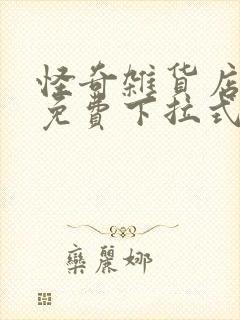 怪奇雑貨店
免費下拉式
欒麗娜